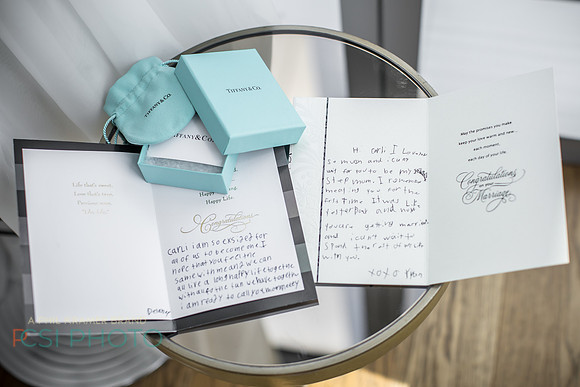 TIFFANY & CO.
TIFFANY & CO.
TIFFANY & CO.
Life that's sweet.
Happy Life.
Congratulations
CARLi i am so excsized for
all of us to become me I
hope that you feel the
same with me and we can
all live a long happy life together
with all of the fun we have together
i am ready to call you mommy
May the promises you make
keep your love warm and new–
each moment,
each day of your life.
Congratulations
on your
Marriage
Hi CArLi I Love you
so much and i cant
wait for you to be my
Step mum. I remember
meeting you for the
first time it was like
yesterday and now
you're getting married
and i can't wait to
spend the rest of my life
with you.
XOXO
PCSI PHOTO